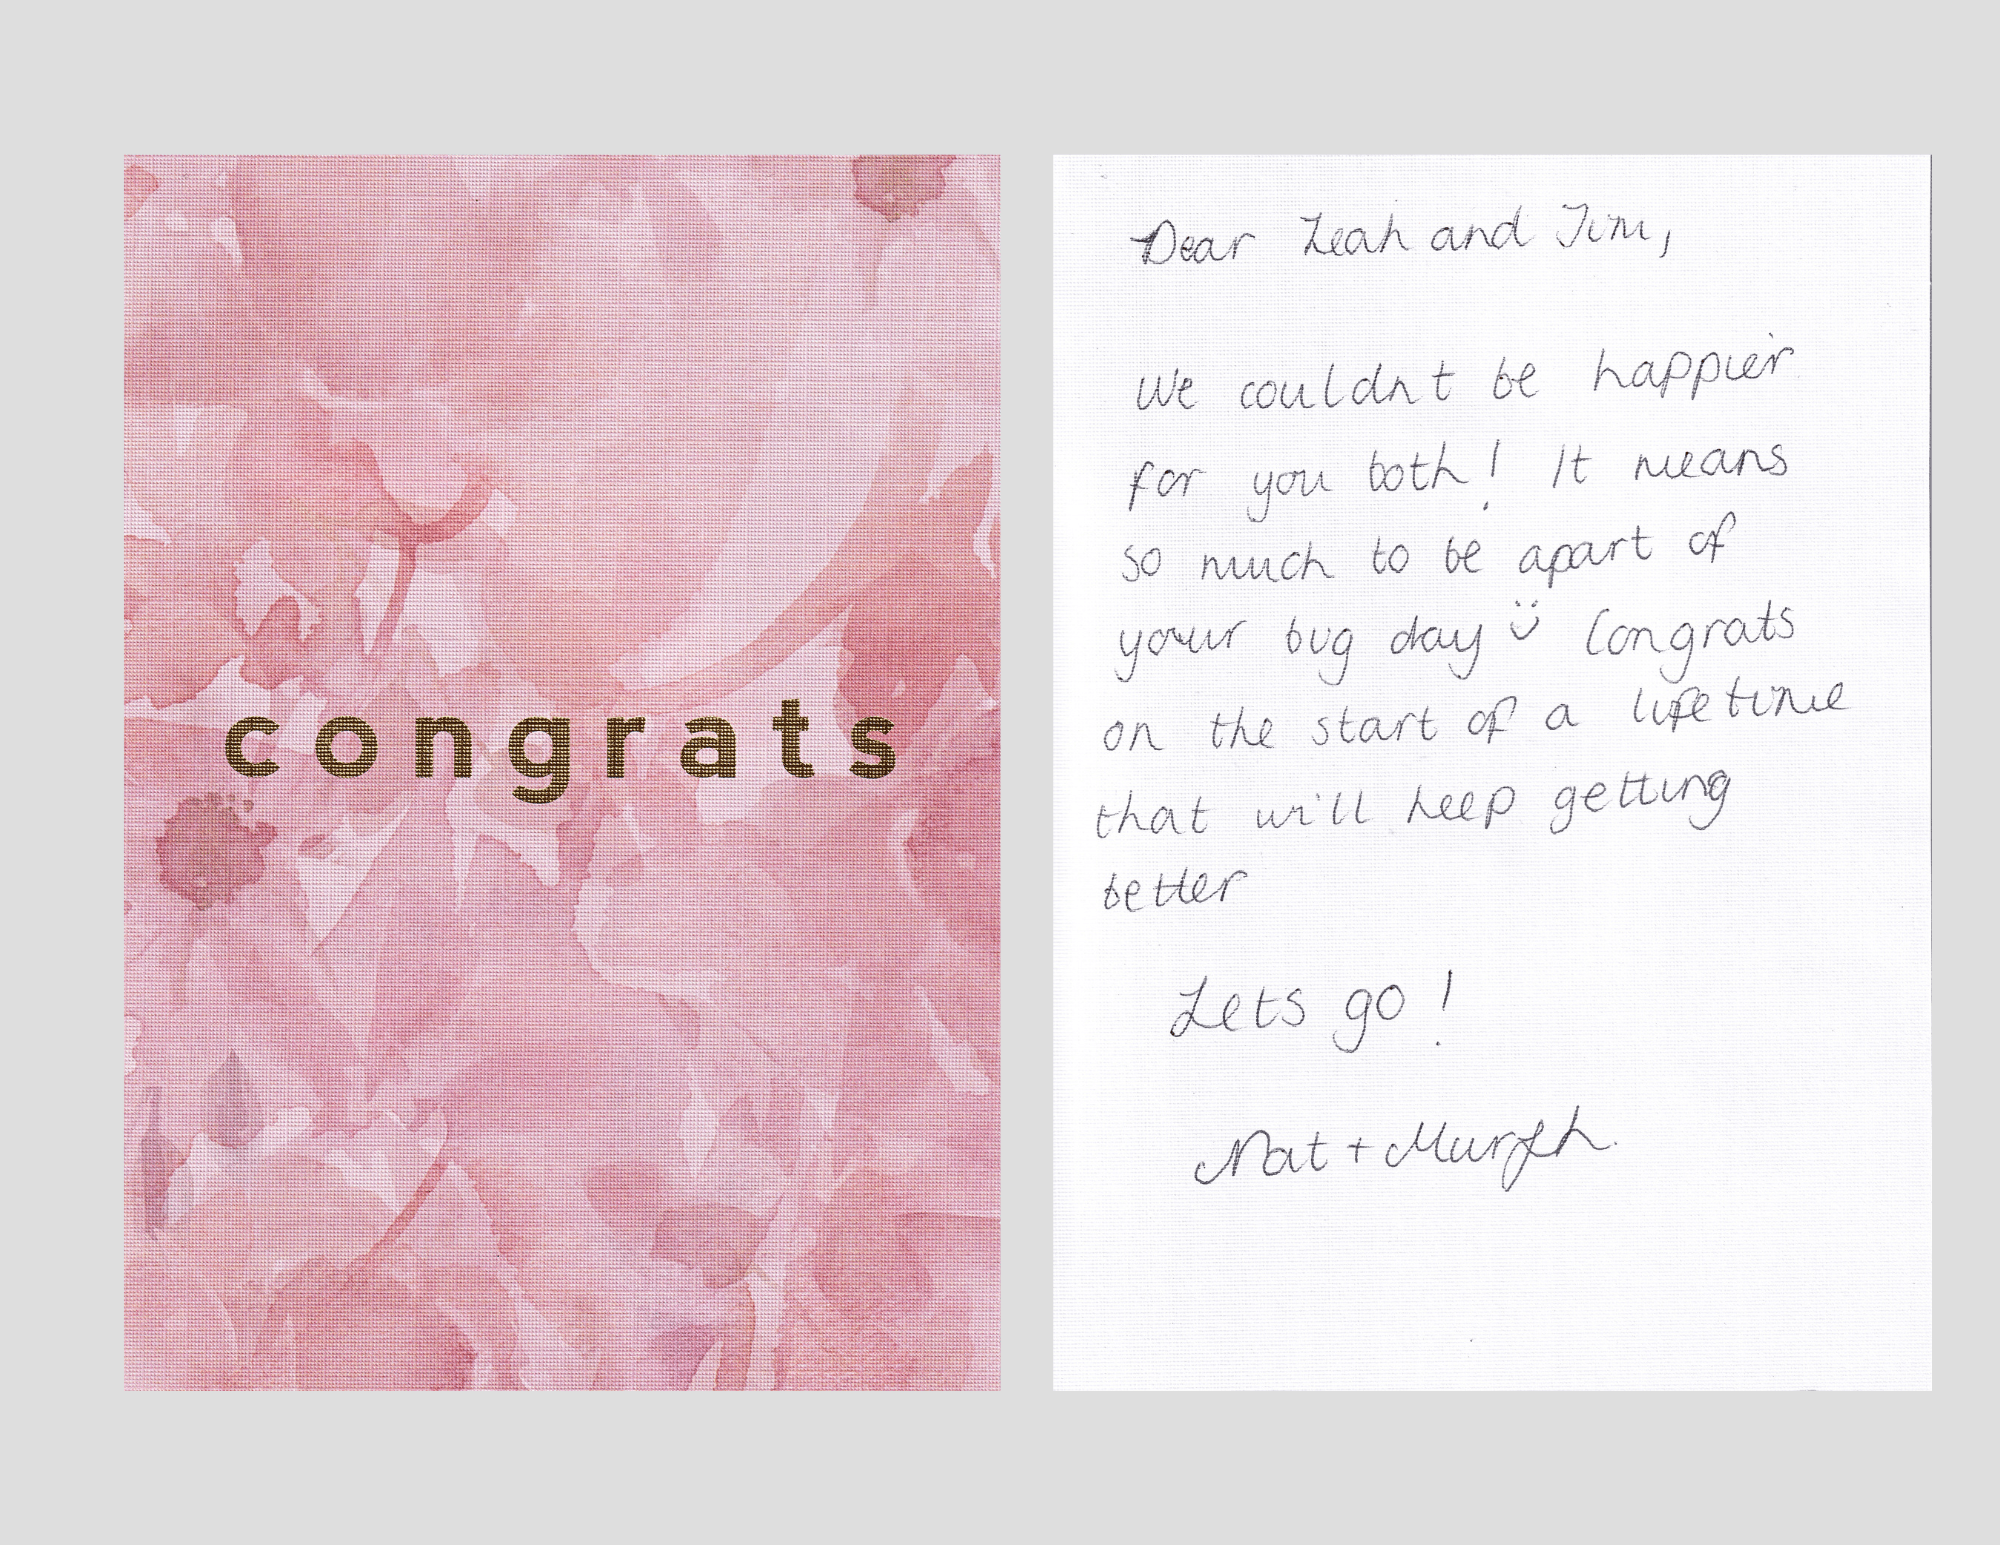 congrats
Dear Leah and Tim,
We couldnt be happier
for you both! It means
so much to be apart of
your big day ü Congrats
on the start of a lifetime
that will keep getting
better
Lets go!
Nat + Murph.